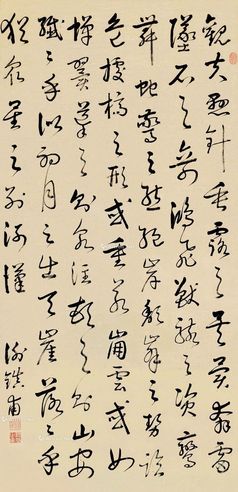 觀夫懸針垂露之異奔雷
墜石之奇鴻飛獸駭之資鸞
舞蛇驚之態絕岸頹峰之勢臨
危據槁之形或重若崩雲或如
蟬翼導之則泉注頓之則山安
纖〻乎似初月之出天崖落〻乎
猶衆星之列河漢